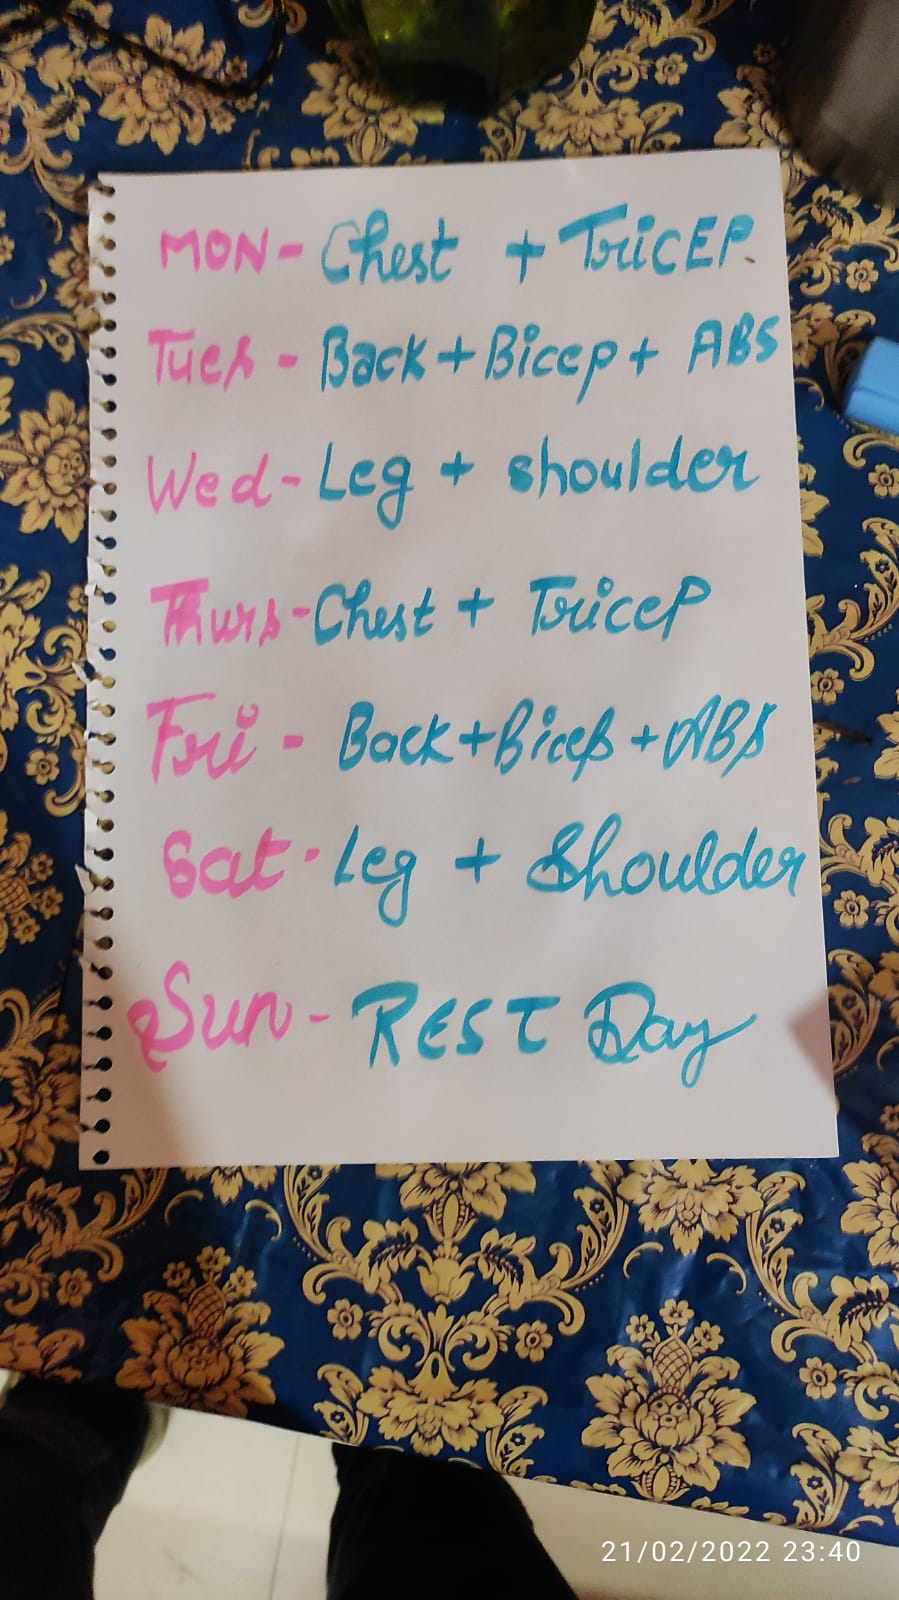 MON - Chest + TriCEP.
Tues - Back + Bicep + ABS
Wed - Leg + shoulder
Thurs - Chest + TriceP
Fri - Back + Bicep + ABS
Sat - Leg + Shoulder
Sun - REST Day
21/02/2022 23:40